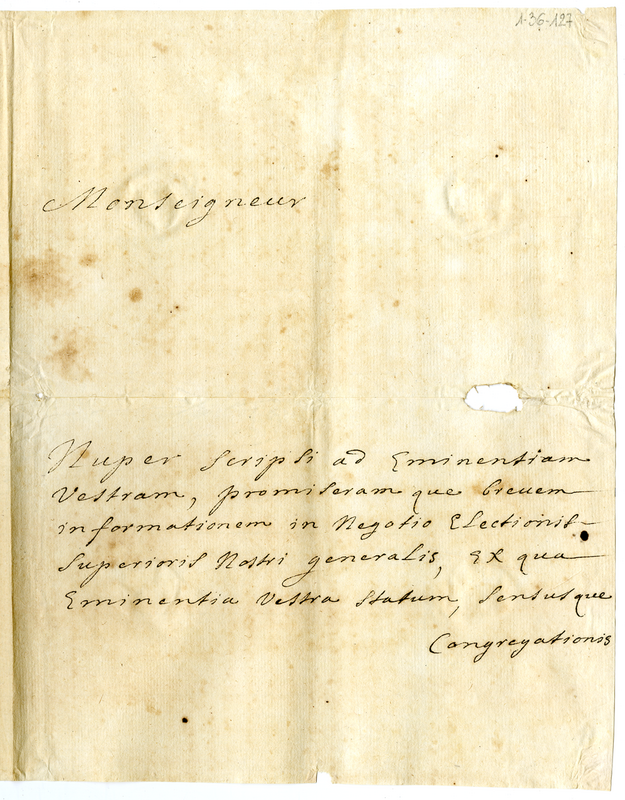 1-36-127
Monseigneur
Nuper scripsi ad Eminentiam
Vestram, promiseram que breuem
informationem in Negotio Electionis
Superioris Nostri generalis, Ex qua
Eminentia Vestra statum, sensusque
Congregationis